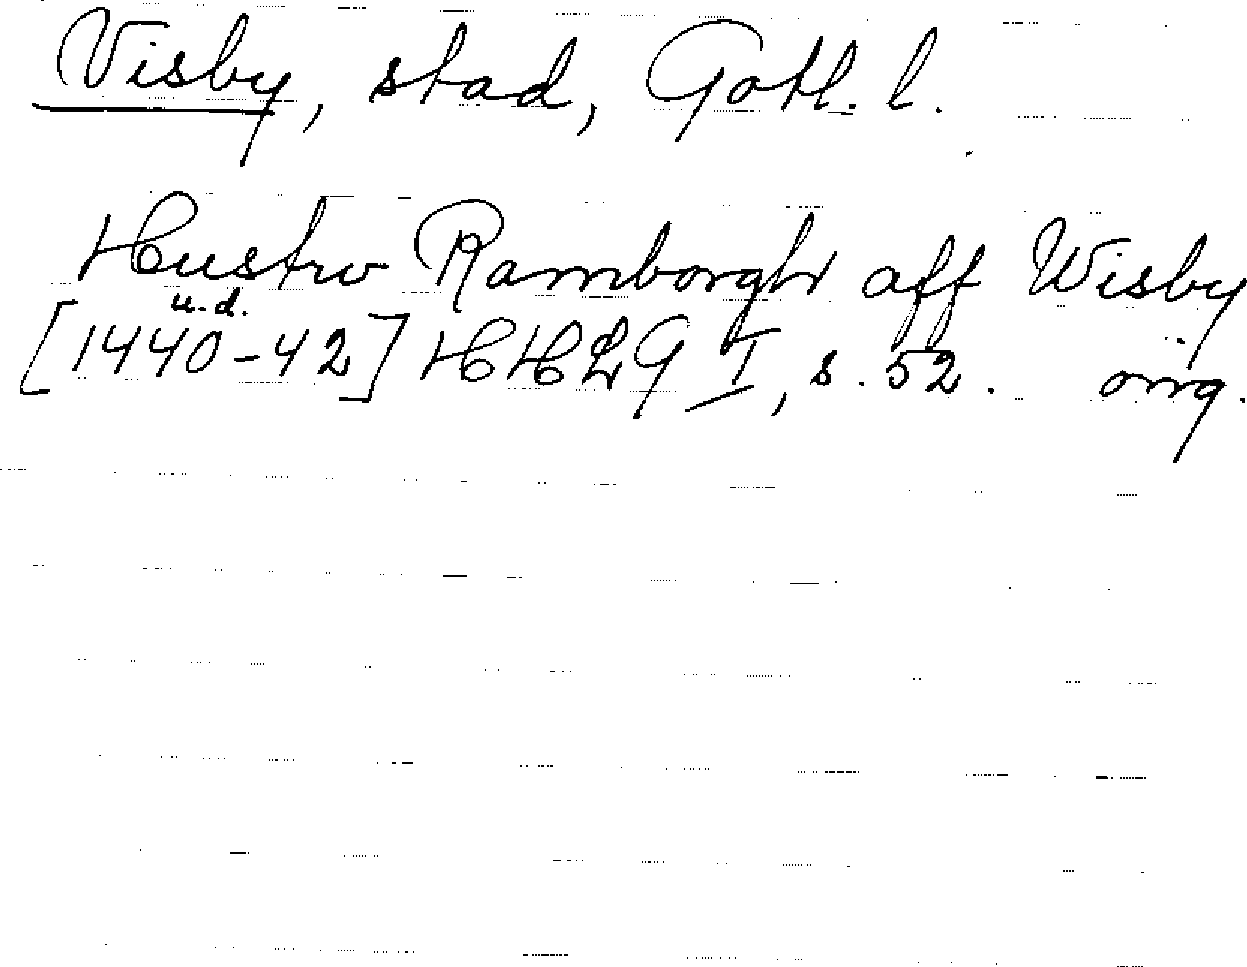 Visby, stad, Gotl. l.
Hustrv Ramborgh aff Wisby
u.d.
[1440-42] HHLG I, s. 52. orig.